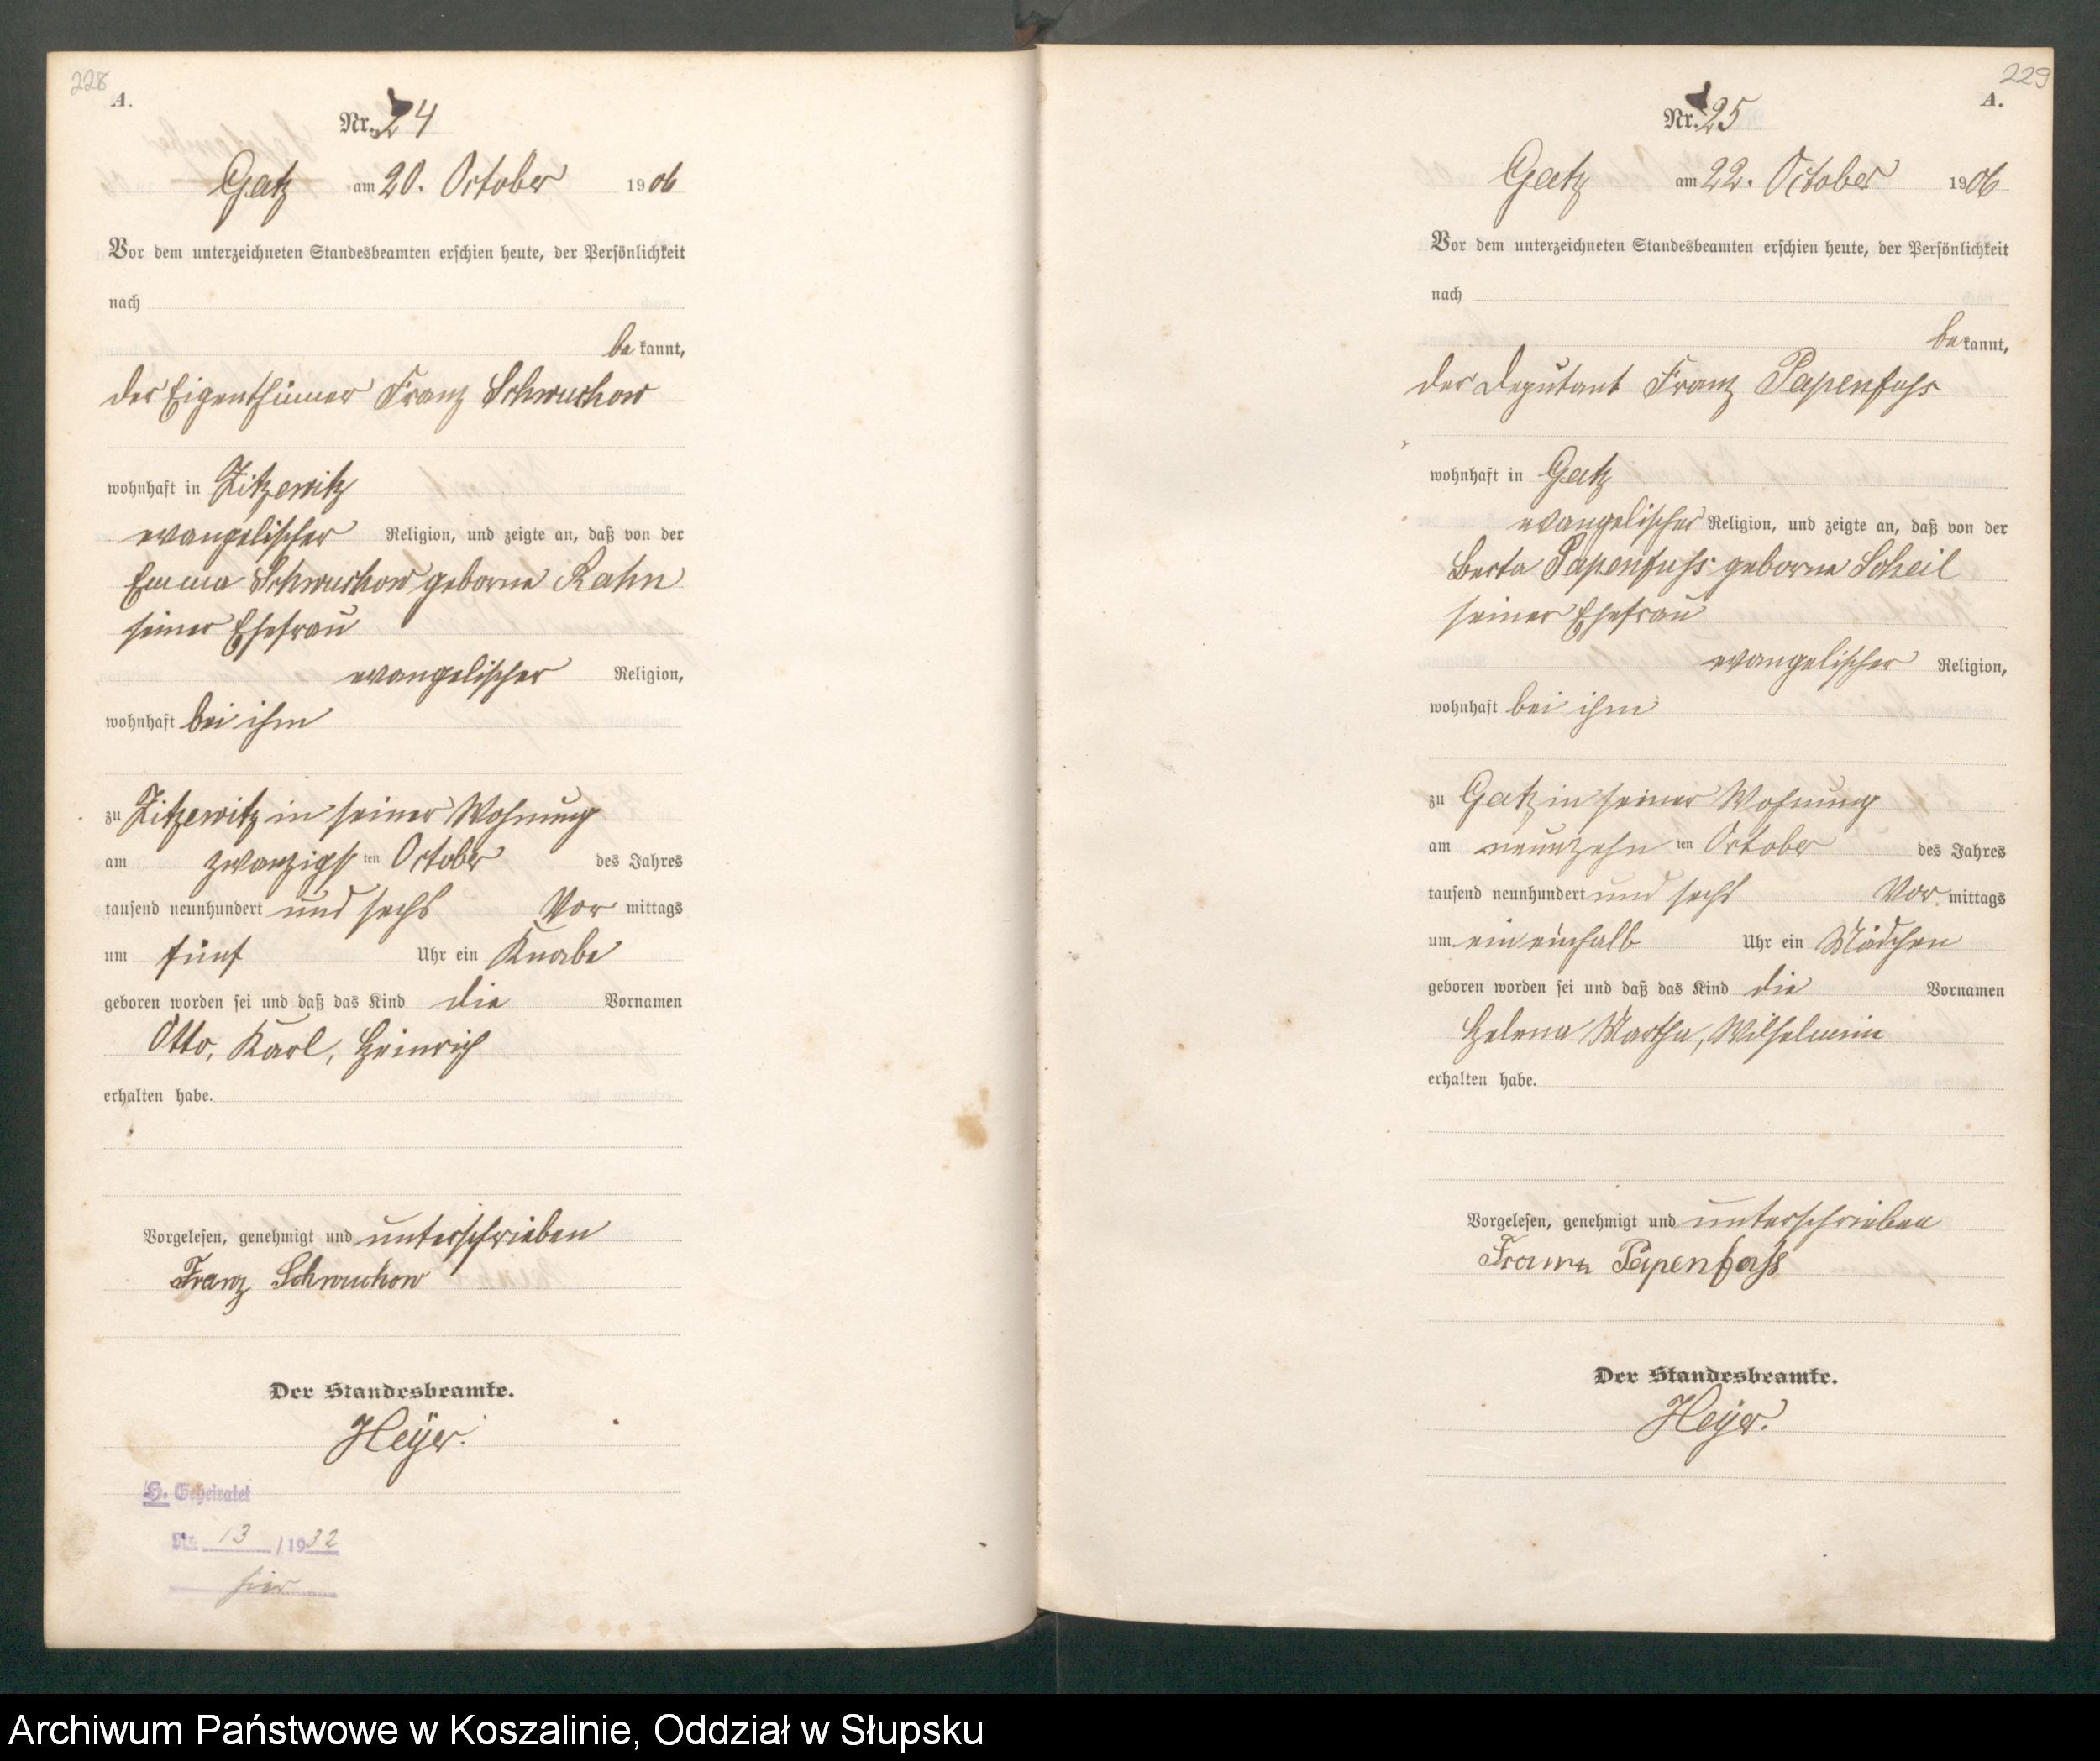 228
A.
Nr. 24
Gatz am 20. October 1906
Vor dem unterzeichneten Standesbeamten erschien heute, der Persönlichkeit
nach
be kannt,
der Eigenthümer Franz Schwuchow
wohnhaft in Zitzewitz
evangelischer Religion, und zeigte an, daß von der
Emma Schwuchow geborne Rahn
seiner Ehefrau
evangelischer Religion,
wohnhaft bei ihm
zu Zitzewitz in seiner Wohnung
am zwanzigsten October des Jahres
tausend neunhundert und sechs Vor mittags
um fünf Uhr ein Knabe
geboren worden sei und daß das Kind die Vornamen
Otto, Karl, Heinrich
erhalten habe.
Vorgelesen, genehmigt und unterschrieben
Franz Schwuchow
Der Standesbeamte.
Heÿer.
H. Geheiratet
Nr. 13 / 1932
hier
229
A.
Nr. 25
Gatz am 22. October 1906
Vor dem unterzeichneten Standesbeamten erschien heute, der Persönlichkeit
nach
be kannt,
der Deputant Franz Papenfuss
wohnhaft in Gatz
evangelischer Religion, und zeigte an, daß von der
Berta Papenfuss geborne Scheil
seiner Ehefrau
evangelischer Religion,
wohnhaft bei ihm
zu Gatz in seiner Wohnung
am neunzehnten October des Jahres
tausend neunhundert und sechs Vor mittags
um ein einhalb Uhr ein Mädchen
geboren worden sei und daß das Kind die Vornamen
Helena Martha, Wilhelmine
erhalten habe.
Vorgelesen, genehmigt und unterschrieben
Franz Papenfuss
Der Standesbeamte.
Heÿer.
Archiwum Państwowe w Koszalinie, Oddział w Słupsku